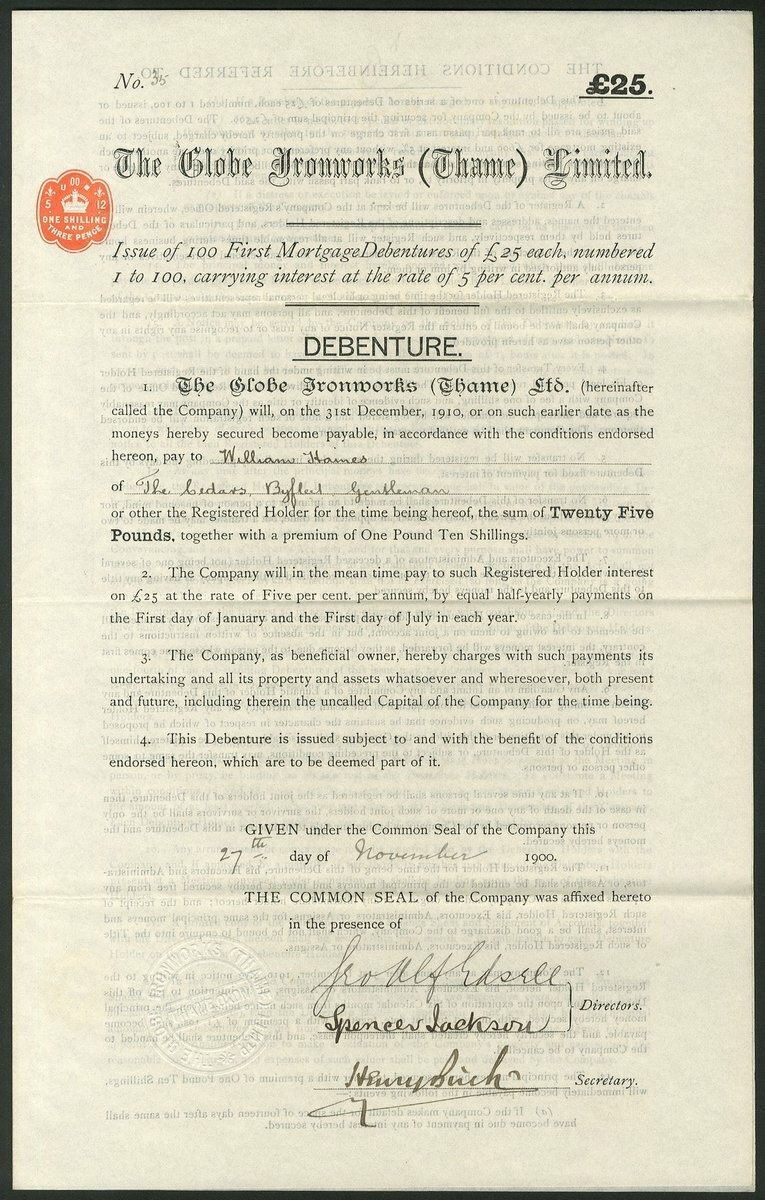 No. 35
£25.
The Globe Ironworks (Thame) Limited.
5 12
ONE SHILLING
AND
THREE PENCE
Issue of 100 First Mortgage Debentures of £25 each, numbered
1 to 100, carrying interest at the rate of 5 per cent. per annum.
DEBENTURE.
1. The Globe Ironworks (Thame) Ltd. (hereinafter
called the Company) will, on the 31st December, 1910, or on such earlier date as the
moneys hereby secured become payable, in accordance with the conditions endorsed
hereon, pay to William Haines
of The Cedars, Byfleet, Gentleman
or other the Registered Holder for the time being hereof, the sum of Twenty Five
Pounds, together with a premium of One Pound Ten Shillings.
2. The Company will in the mean time pay to such Registered Holder interest
on £25 at the rate of Five per cent. per annum, by equal half-yearly payments on
the First day of January and the First day of July in each year.
3. The Company, as beneficial owner, hereby charges with such payments its
undertaking and all its property and assets whatsoever and wheresoever, both present
and future, including therein the uncalled Capital of the Company for the time being.
4. This Debenture is issued subject to and with the benefit of the conditions
endorsed hereon, which are to be deemed part of it.
GIVEN under the Common Seal of the Company this
27th day of November 1900.
THE COMMON SEAL of the Company was affixed hereto
in the presence of
Geo Alf Edsell
Spencer Jackson
Directors.
Henry Birch
Secretary.